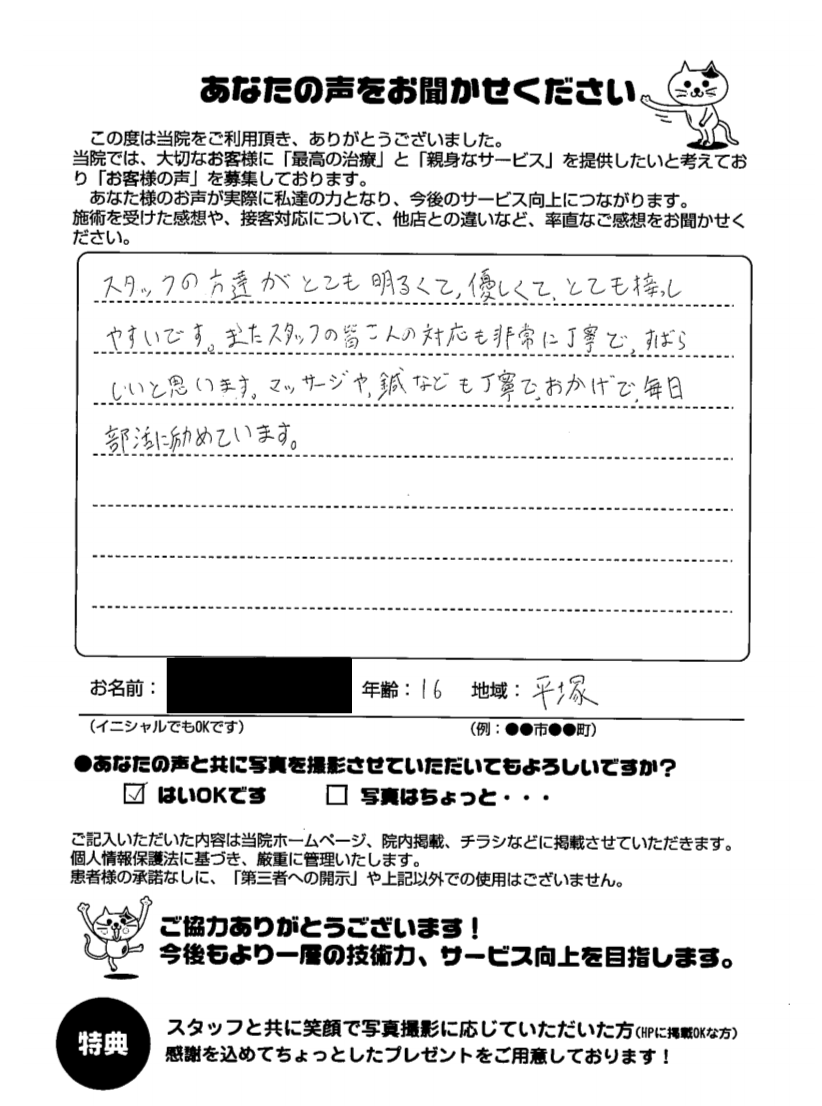 あなたの声をお聞かせください
この度は当院をご利用頂き、ありがとうございました。
当院では、大切なお客様に「最高の治療」と「親身なサービス」を提供したいと考えてお
り「お客様の声」を募集しております。
あなた様のお声が実際に私達の力となり、今後のサービス向上につながります。
施術を受けた感想や、接客対応について、他店との違いなど、率直なご感想をお聞かせく
ださい。
スタッフの方達がとても明るくて、優しくて、とても接し
やすいです。またスタッフの皆さんの対応も非常に丁寧で、すばら
しいと思います。マッサージや、鍼なども丁寧で、おかげで、毎日
部活に励めています。
お名前： 年齢：16 地域：平塚
（イニシャルでもOKです） （例：●●市●●町）
●あなたの声と共に写真を撮影させていただいてもよろしいですか？
☑ はいOKです □ 写真はちょっと・・・
ご記入いただいた内容は当院ホームページ、院内掲載、チラシなどに掲載させていただきます。
個人情報保護法に基づき、厳重に管理いたします。
患者様の承諾なしに、「第三者への開示」や上記以外での使用はございません。
ご協力ありがとうございます！
今後もより一層の技術力、サービス向上を目指します。
特典
スタッフと共に笑顔で写真撮影に応じていただいた方(HPに掲載OKな方)
感謝を込めてちょっとしたプレゼントをご用意しております！